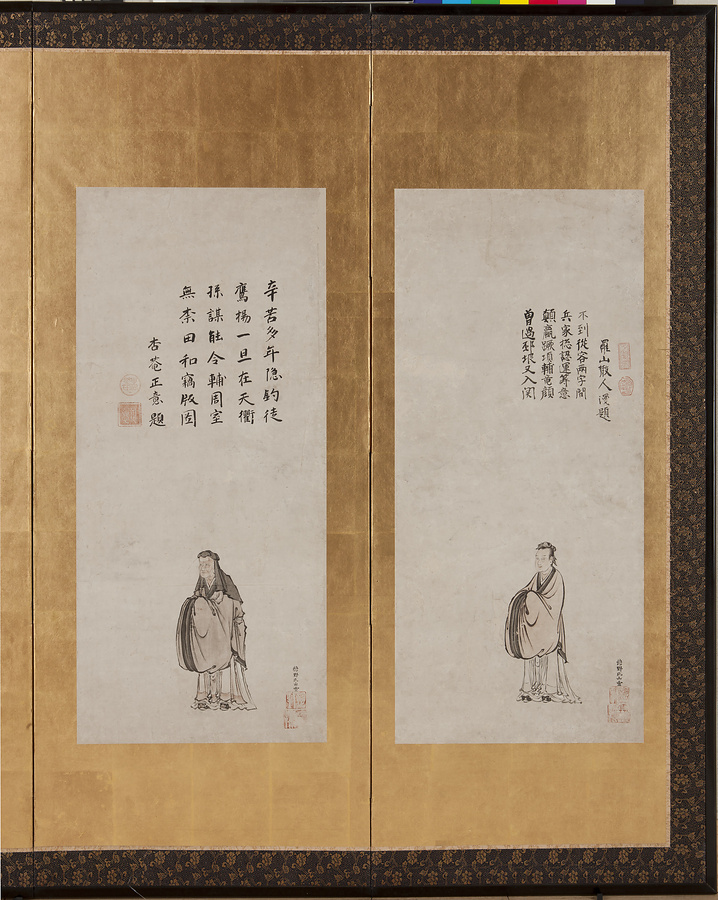 曾過邳圯又入関
顛嬴蹶項輔竜顔
兵家認運籌意
不到從容兩字間
羅山散人漫題
狩野氏山雪
辛苦多年隐釣徒
鷹揚一旦在天衢
孫謀能令輔周室
無柰田和竊版圖
杏菴正意題
狩野氏山雪